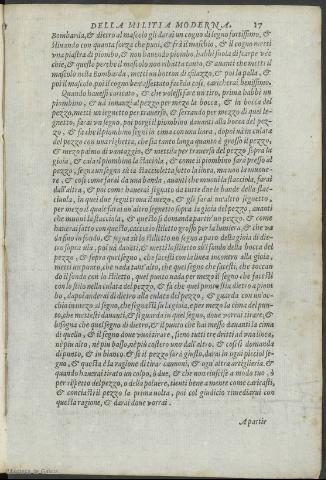 DELLA MILITIA MODERNA. 17
Bombarda, & dietro al mascolo gli darai un cogno di legno fortissimo, &
stivando con quanta forza che puoi, & frà il maschio, & il cogno metti
una piastra di piombo, & non havendo piombo, habbi suola di scarpe vec
chie, & questo perche il mascolo non ributta tanto, & avanti che metti il
mascolo nella Bombarda, metti un botton di , & poi la palla, &
poi il mascolo, poi il cogno ben assettato fia chi così, caricherai benissimo.
Quando haverai caricato, & che volessi fare un tiro, prima habbi un
piombino, & và innanzi al pezzo per mezo la bocca, & in bocca del
pezzo, metti un segnetto per traverso, & serrando per mezzo di quel se-
gnetto, farai un segno, poi porgi il piombino davanti alla bocca del pez
zo, & fa che il piombino segni in cima con una linea, dopoi và in culata
del pezzo con una righetta, che sia tanto lunga quanto è grosso il pezzo,
& mezo piede di vantaggio, & mettela per traverso del pezzo sopra la
gioia, & cui a il piombino la staciola, & come il piombino sarà presso al
pezzo, segna un segno in la staciuletta sotto la linea, ma non la muove-
re, & così come farai da una banda, avanti che muovi la staciuola, farai
dall'altra, & poi come haverai signato da tutte due le bande della stac
ciuola, in quei due segni trova il mezo, & gli farai un'altro segnetto,
per mezo il quale farai un'altro signetto sopra la gioia del pezzo, avanti
che muovi la staciuola, & questo si domanda partir un pezzo. & come
haverai fatto con questo, caccia lo stiletto grosso per la lumiera, & che va
da fino in fondo, & segna in lo stilletto un segno a paro della gioia di die-
tro sopra alla, poi và davanti, & metti lo stilletto sù il fondo della bocca
del pezzo, & sopra quel segno, che facesti con la linea incontro alla gioia,
metti un ponto, che vada tant'alto, che quel segno che facesti, che toccan
do il fondo con lo stiletto, quel ponto vada per mezo il segno che facesti
con lo stilo nella culata del pezzo, & fà che quel ponto stia dietro a piom
bo, dapò anderai di dietro alla culata del pezzo, & guarda con un oc-
chio in mezo al segno, che segnasti sù la gioia, e per mezo la cima del pon-
to, che mettesti davanti, & si guarda in quel segno, dove vorrai tirare, &
bisogna che quel segno di dietro, & il ponto che hai messo davanti la cima
di quello, & il segno dove vuoi tirare, siano tutti tre dritti ad una linea,
nè piu alto, nè piu basso, nè più costero uno dall'altro. & così si domanda
di ponto, & in bianco. & se il pezzo sarà giusto, darai in ogni picciol se-
gno, & questa è la ragione di tirar cannoni, & ogni altra artiglieria. &
quando haverai tirato un colpo, ò due, & che non riuscisse a modo tuo, ò
per rispetto del pezzo, o della polvere, tienti bene a mente come caricasti,
& conciasti il pezzo la prima volta, poi col giudicio rimediarai con
questa ragione, & darai dove vorrai.
A partir